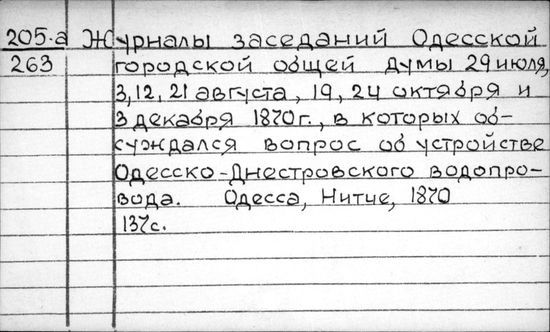 205-а Журналы заседаний Одесской
263 городской общей Думы 29 июля,
3, 12, 21 августа, 19, 24 октября и
3 декабря 1870 г., в которых об-
суждался вопрос об устройстве
Одесско-Днестровского водопро-
вода. Одесса, Нитче, 1870
137с.